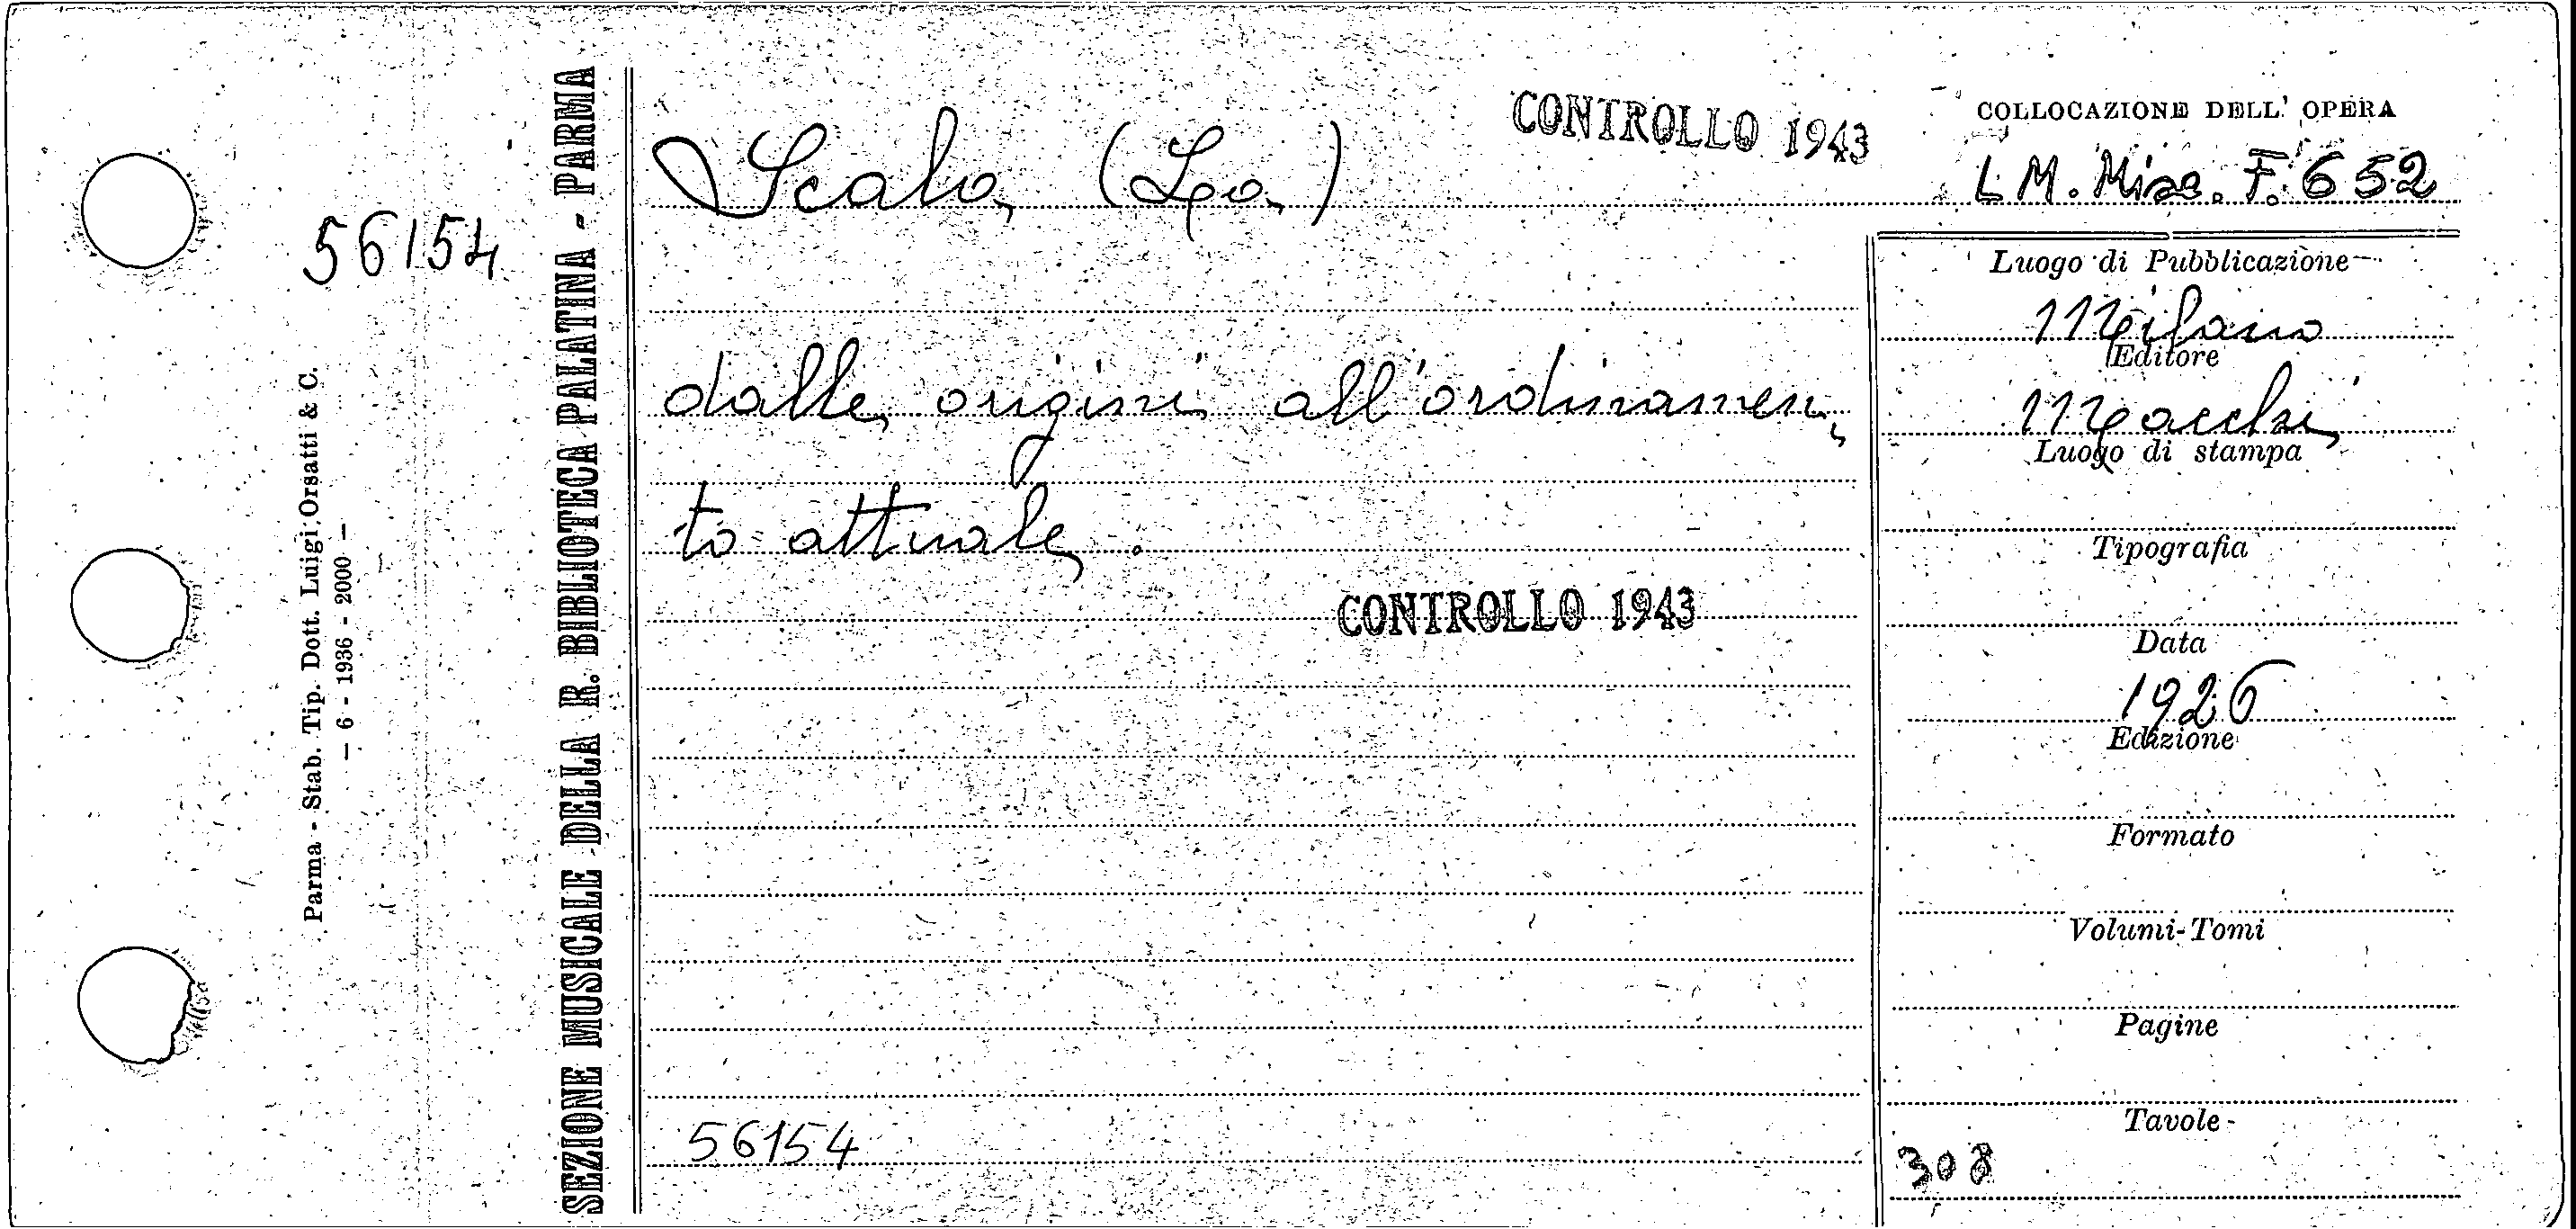 CONTROLLO 1943
COLLOCAZIONE DELL' OPERA
Scala (La)
L M. Misc. F. 652
56154
SEZIONE MUSICALE DELLA R. BIBLIOTECA PALATINA - PARMA
Parma - Stab. Tip. Dott. Luigi Orsatti & C.
— 6 - 1936 - 2000 —
dalle origini all'ordinamen,
to attuale.
CONTROLLO 1943
56154
Luogo di Pubblicazione
Milano
Editore
Macchi
Luogo di stampa
Tipografia
Data
1926
Edizione
Formato
Volumi-Tomi
Pagine
Tavole
308